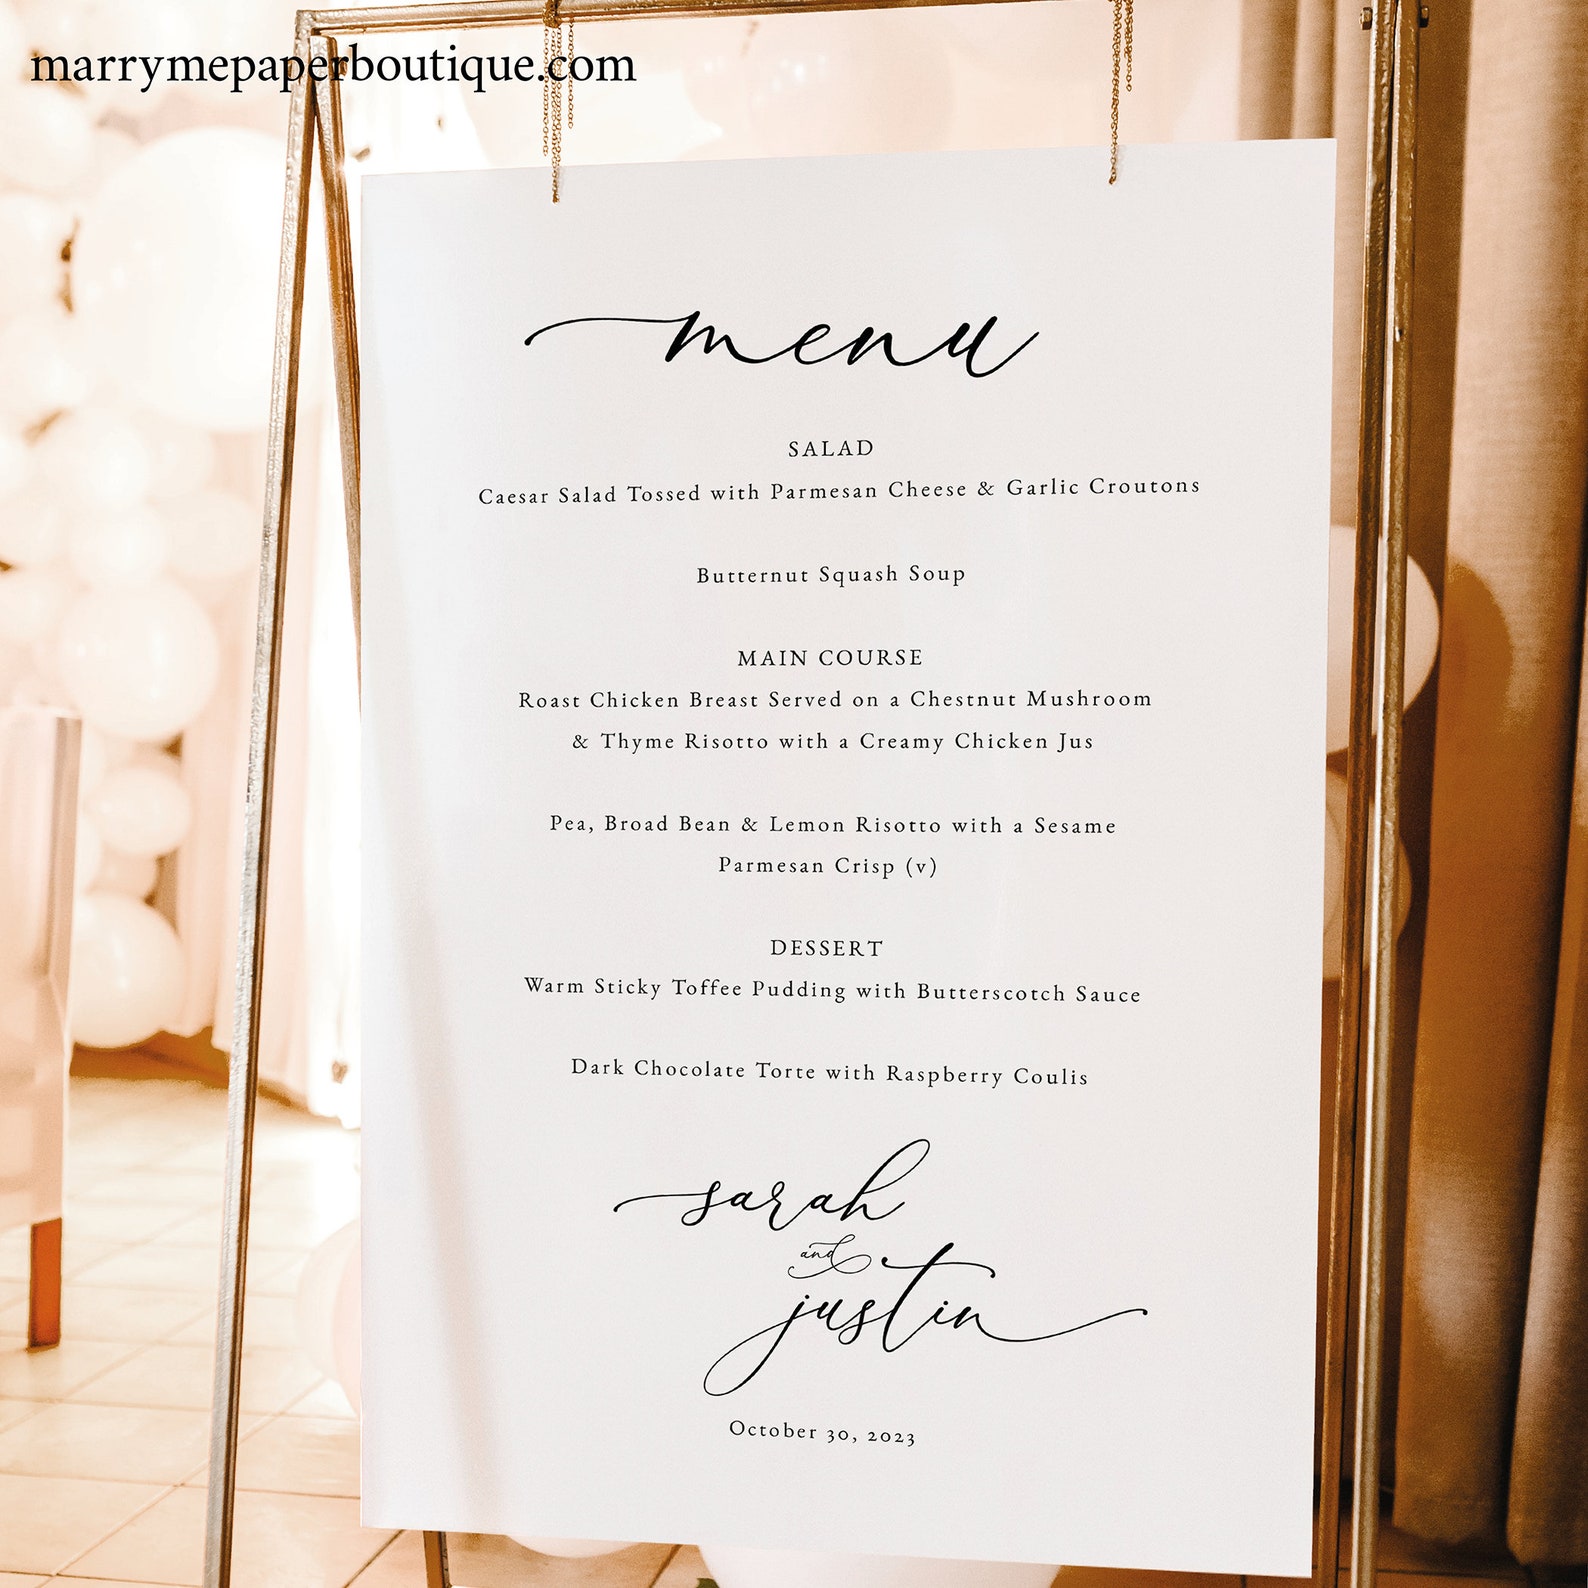 marrymepaperboutique.com
menu
SALAD
Caesar Salad Tossed with Parmesan Cheese & Garlic Croutons
Butternut Squash Soup
MAIN COURSE
Roast Chicken Breast Served on a Chestnut Mushroom
& Thyme Risotto with a Creamy Chicken Jus
Pea, Broad Bean & Lemon Risotto with a Sesame
Parmesan Crisp (v)
DESSERT
Warm Sticky Toffee Pudding with Butterscotch Sauce
Dark Chocolate Torte with Raspberry Coulis
sarah
and
justin
October 30, 2023